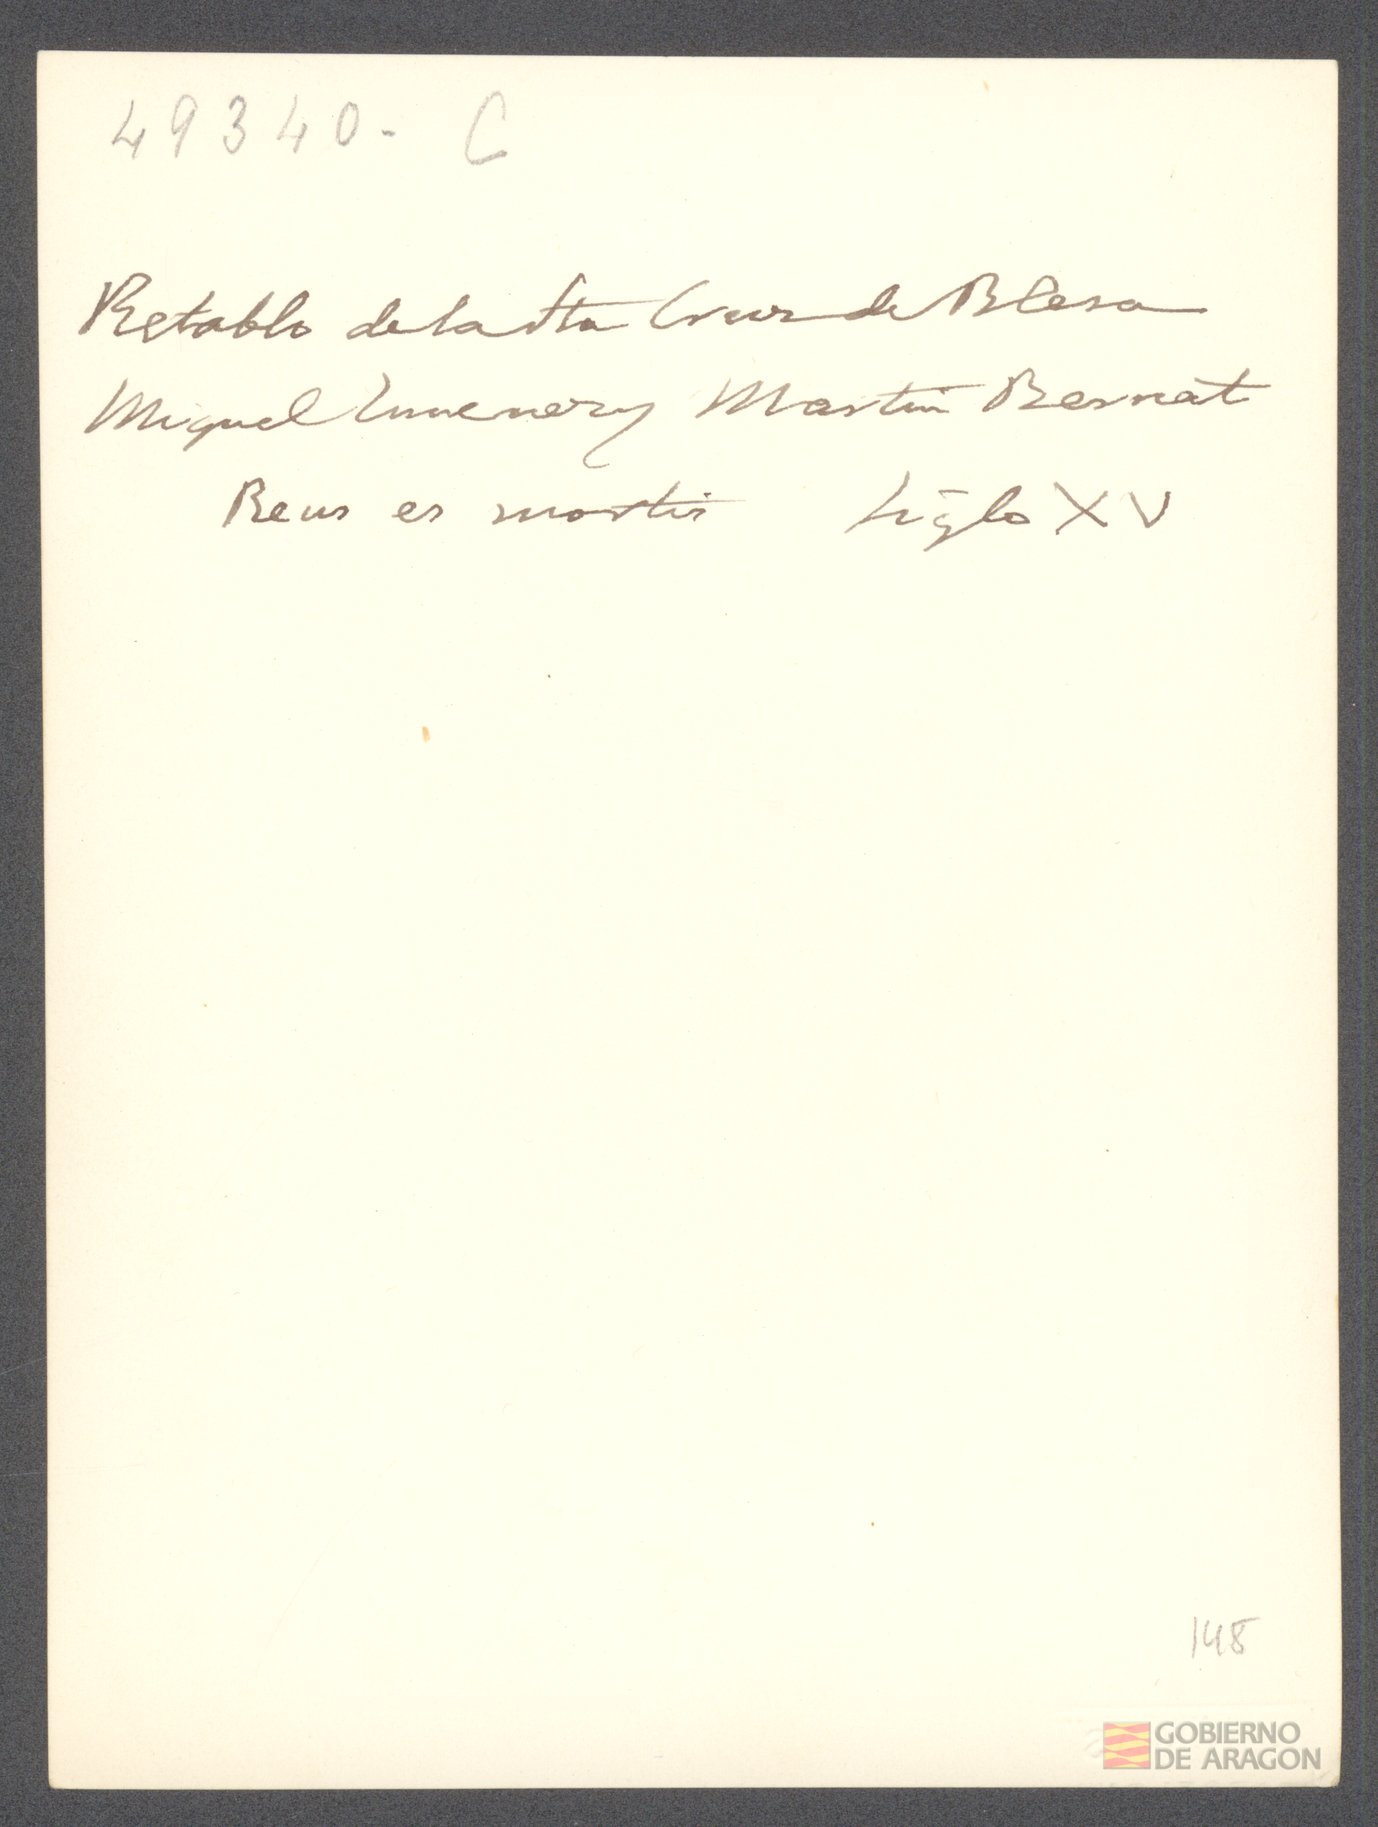 49340- C
Retablo de la Sta Cruz de Blesa
Miguel Ximenez y Martin Bernat
Reus es mortis Siglo XV
148
GOBIERNO
DE ARAGON